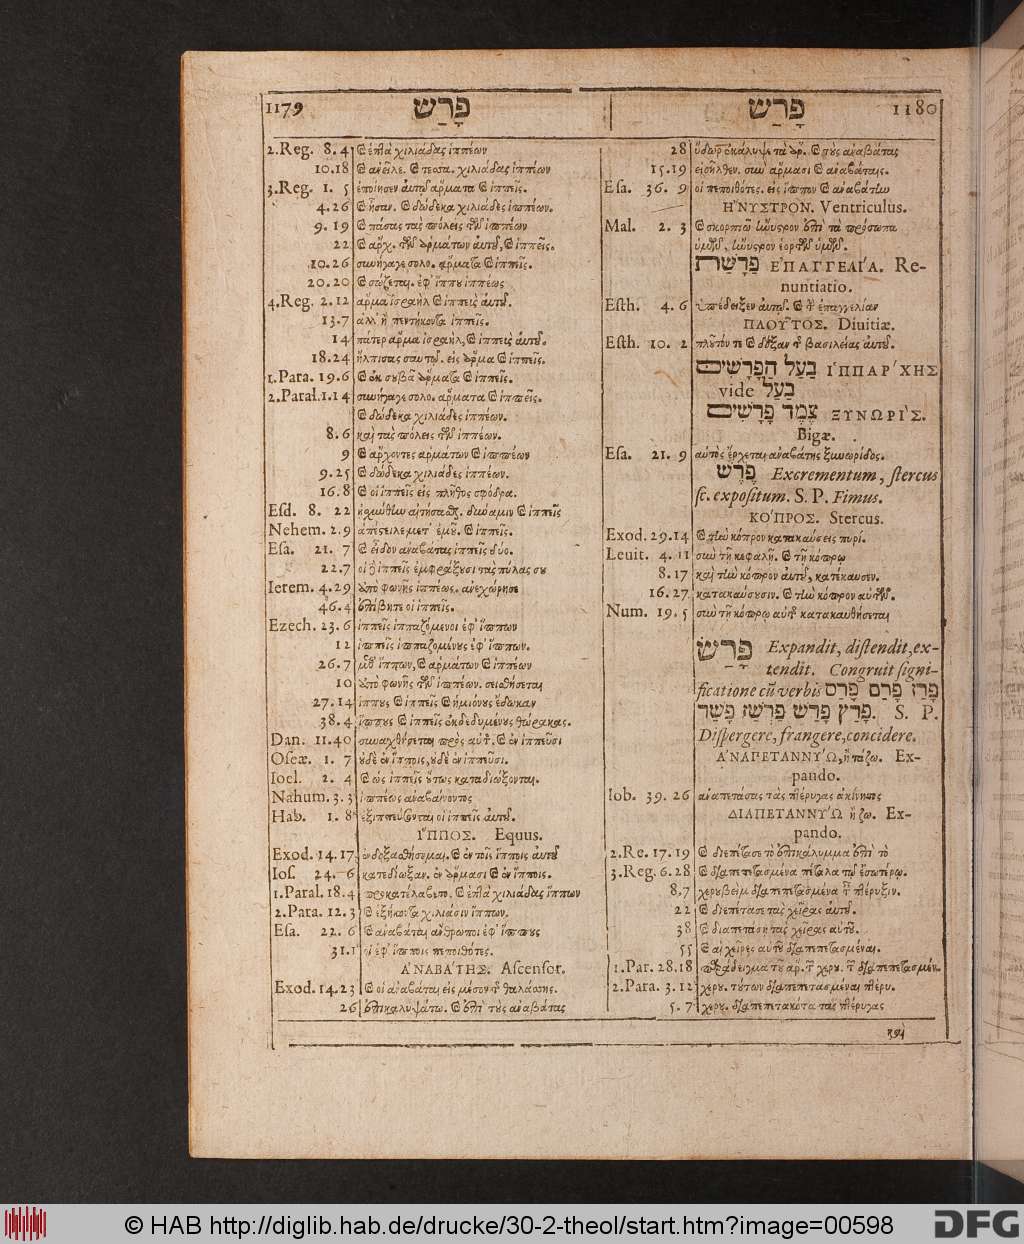 1179 פָּרַשׁ
2.Reg. 8.4 καὶ ἑπτὰ χιλιάδας ἱππέων
10.18 καὶ ἀνεῖλε. καὶ τεσσα. χιλιάδας ἱππέων
3.Reg. 1. 5 ἐποίησεν αὐτῷ ἅρματα καὶ ἱππεῖς.
4.26 καὶ ἦσαν. καὶ δώδεκα χιλιάδες ἱππέων.
9.19 καὶ πάσας τὰς πόλεις τῶν ἱππέων
22 καὶ ἄρχ. τῶν ἁρμάτων αὐτοῦ, καὶ ἱππεῖς.
10.26 συνήγαγε σολο. ἅρματα καὶ ἱππεῖς.
20.20 καὶ σώζεται. ἐφ' ἵππου ἱππέως
4.Reg. 2.12 ἅρμα ἰσραὴλ καὶ ἱππεὺς αὐτοῦ.
13.7 ἀλλ' ἢ πεντήκοντα ἱππεῖς.
14 πάτερ ἅρμα ἰσραὴλ, καὶ ἱππεὺς αὐτοῦ.
18.24 ἤλπισας σαυτῷ. εἰς ἅρμα καὶ ἱππεῖς.
1.Para. 19.6 καὶ ἐκ σουβᾶ ἅρματα καὶ ἱππεῖς.
2.Paral.1.14 συνήγαγε σολο. ἅρματα καὶ ἱππεῖς.
καὶ δώδεκα χιλιάδες ἱππέων.
8.6 καὶ τὰς πόλεις τῶν ἱππέων.
9 καὶ ἄρχοντες ἁρμάτων καὶ ἱππέων
9.25 καὶ δώδεκα χιλιάδες ἱππέων.
16.8 καὶ οἱ ἱππεῖς εἰς πλῆθος σφόδρα.
Esd. 8. 22 ᾐσχύνθην αἰτήσασθαι. δύναμιν καὶ ἱππεῖς
Nehem. 2.9 ἀπέστειλε μετ' ἐμοῦ. καὶ ἱππεῖς.
Esa. 21. 7 καὶ εἶδον ἀναβάτας ἱππεῖς δύο.
22.7 οἱ δὲ ἱππεῖς ἐμφράξουσι τὰς πύλας σου
Ierem. 4.29 ἀπὸ φωνῆς ἱππέως. ἀνεχώρησε
46.4 ἐπίβητε οἱ ἱππεῖς.
Ezech. 23.6 ἱππεῖς ἱππαζόμενοι ἐφ' ἵππων
12 ἱππεῖς ἱππαζομένους ἐφ' ἵππων.
26.7 μεθ' ἵππων, καὶ ἁρμάτων καὶ ἱππέων
10 ἀπὸ φωνῆς τῶν ἱππέων. σεισθήσεται
27.14 ἵππους καὶ ἱππεῖς καὶ ἡμιόνους ἔδωκαν
38.4 ἵππους καὶ ἱππεῖς ἐνδεδυμένους θώρακας.
Dan. 11.40 συναχθήσεται πρὸς αὐτὸν. καὶ ἐν ἱππεῦσι
Oseæ. 1. 7 οὐδὲ ἐν ἵπποις, οὐδὲ ἐν ἱππεῦσι.
Ioel. 2. 4 καὶ ὡς ἱππεῖς οὕτως καταδιώξονται.
Nahum. 3.3 ἱππέως ἀναβαίνοντος
Hab. 1. 8 ἐξιππεύσονται οἱ ἱππεῖς αὐτοῦ.
ἽΠΠΟΣ. Equus.
Exod. 14.17 ἐνδοξασθήσομαι. καὶ ἐν τοῖς ἵπποις αὐτοῦ
Ios. 24. 6 κατεδίωξαν. ἐν ἅρμασι καὶ ἐν ἵπποις.
1.Paral. 18.4 προκατέλαβετο. καὶ ἑπτὰ χιλιάδας ἵππων
2.Para. 12.3 καὶ ἑξήκοντα χιλιάσιν ἵππων.
Esa. 22. 6 καὶ ἀναβάται ἄνθρωποι ἐφ' ἵππους
31.1 οἱ ἐφ' ἵπποις πεποιθότες.
ἈΝΑΒΆΤΗΣ. Ascensor.
Exod. 14.23 καὶ οἱ ἀναβάται εἰς μέσον τῆς θαλάσσης.
26 ἐπικαλυψάτω. καὶ ἐπὶ τοὺς ἀναβάτας
פָּרַשׁ 1180
28 ὕδωρ ἐκάλυψε τὰ ἅρ. καὶ τοὺς ἀναβάτας
15.19 εἰσῆλθεν. σὺν ἅρμασι καὶ ἀναβάταις.
Esa. 36. 9 οἱ πεποιθότες. εἰς ἵππον καὶ ἀναβάτην
ἬΝΥΣΤΡΟΝ. Ventriculus.
Mal. 2. 3 καὶ σκορπιῶ ἤνυστρον ἐπὶ τὰ πρόσωπα
ὑμῶν, ἤνυστρον ἑορτῶν ὑμῶν.
פָּרָשַׁת ἘΠΑΓΓΕΛΊΑ. Re-
nuntiatio.
Esth. 4. 6 ὑπέδειξεν αὐτῷ. καὶ τὴν ἐπαγγελίαν
ΠΛΟΥ͂ΤΟΣ. Diuitiæ.
Esth. 10. 2 πλοῦτόν τε καὶ δόξαν τῆς βασιλείας αὐτοῦ.
בַּעַל הַפָּרָשִׁים ἹΠΠΆΡΧΗΣ
vide בַּעַל
צֶמֶד פָּרָשִׁים ΞΥΝΩΡΊΣ.
Bigæ.
Esa. 21. 9 αὐτὸς ἔρχεται ἀναβάτης ξυνωρίδος.
פֶּרֶשׁ Excrementum, stercus
sc. expositum. S. P. Fimus.
ΚΌΠΡΟΣ. Stercus.
Exod. 29.14 καὶ τὴν κόπρον κατακαύσεις πυρί.
Leuit. 4. 11 σὺν τῇ κεφαλῇ. καὶ τῇ κόπρῳ
8.17 καὶ τὴν κόπρον αὐτοῦ, κατέκαυσεν.
16.27 κατακαύσουσιν. καὶ τὴν κόπρον αὐτῶν.
Num. 19. 5 σὺν τῇ κόπρῳ αὐτῆς κατακαυθήσεται
פָּרַשׂ Expandit, distendit, ex-
tendit. Congruit signi-
ficatione cū verbis פָּרַז פָּרַם פָּרַס
פָּרַץ פָּרַשׁ פִּרְשֵׁז פָּשַׂר. S. P.
Dispergere, frangere, concidere.
ἈΝΑΠΕΤΑΝΝΎΩ, ἢ τάζω. Ex-
pando.
Iob. 39. 26 ἀναπετάσας τὰς πτέρυγας ἀκίνητος
ΔΙΑΠΕΤΑΝΝΎΩ ἢ ζω. Ex-
pando.
2.Re. 17.19 καὶ διεπέτασε τὸ ἐπικάλυμμα ἐπὶ τὸ
3.Reg. 6.28 καὶ διαπεπετασμένα πέταλα τῷ ἐσωτέρῳ.
8.7 χερουβεὶμ διαπεπετασμένα ταῖς πτέρυξιν.
22 καὶ διεπέτασε τὰς χεῖρας αὐτοῦ.
38 καὶ διαπετάσῃ τὰς χεῖρας αὐτοῦ.
55 καὶ αἱ χεῖρες αὐτοῦ διαπεπετασμέναι.
1.Par. 28.18 παράδειγμα τοῦ ἅρ. τῶν χερου. τῶν διαπεπετασμέν.
2.Para. 3.12 χερου. τούτων διαπεπετασμέναι πτέρυ.
5. 7 χερου. διαπεπετακότα τὰς πτέρυγας
καὶ
© HAB http://diglib.hab.de/drucke/30-2-theol/start.htm?image=00598
DFG